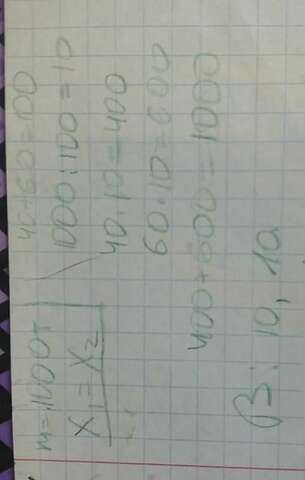 m=1000т 40+60=100
X₁=X₂ 1000:100=10
40·10=400
60·10=600
400+600=1000
В: 10, 10